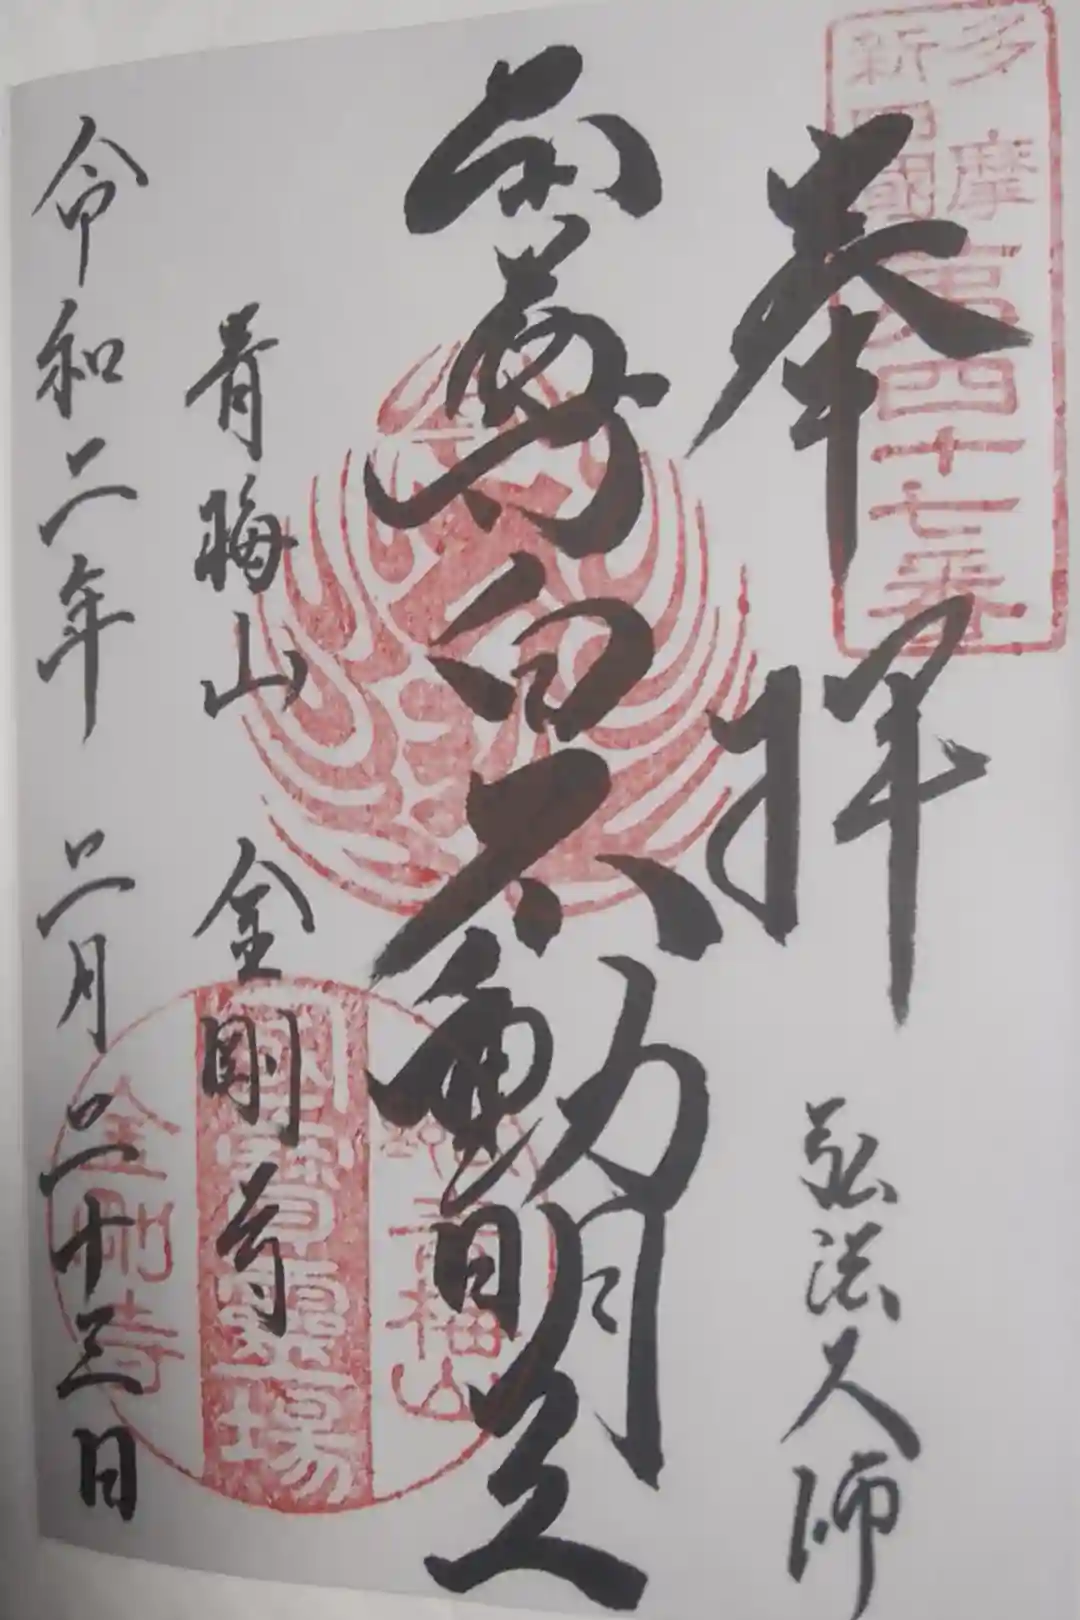 多摩
新四國
第四十七番
奉拝
弘法大師
白不動明王
青梅山 金剛寺
令和二年 二月二十三日
青梅山
靈場
金剛寺